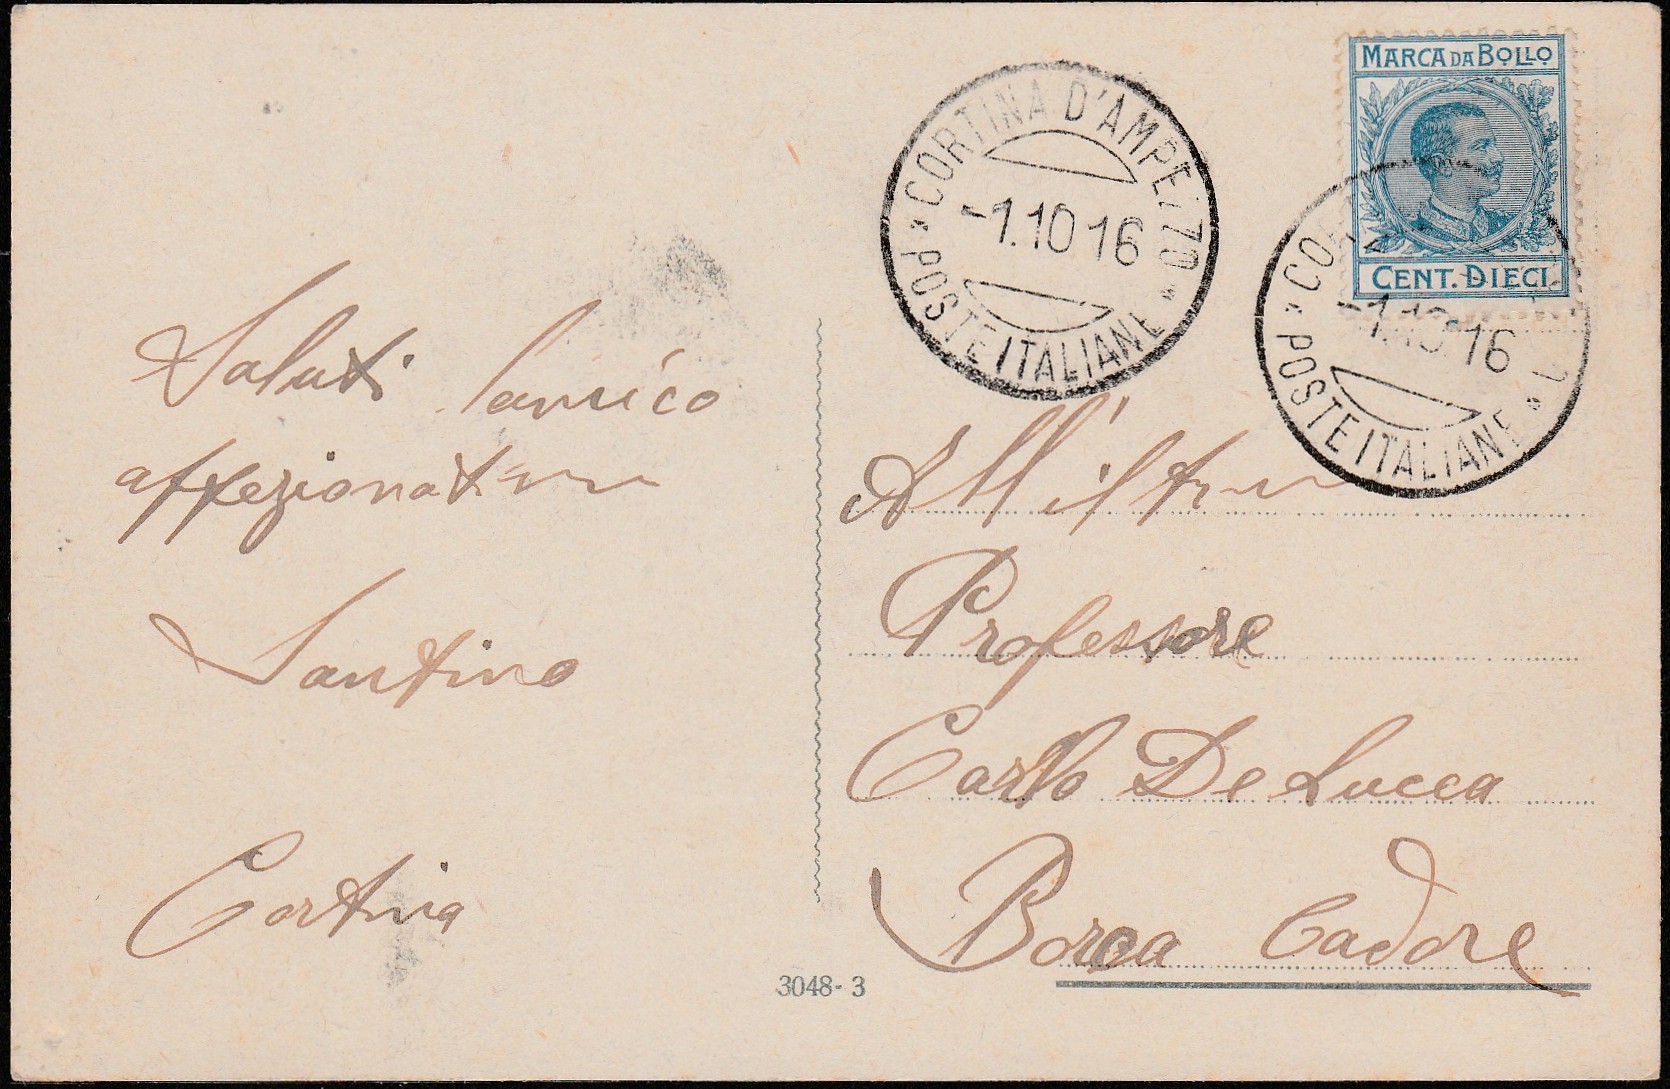 MARCA DA BOLLO
CENT. DIECI
* CORTINA D'AMPEZZO *
-1.10 16
POSTE ITALIANE
* CO
-1.10.16
POSTE ITALIANE *
Saluti l'amico
affezionatmo
Santino
Cortina
All'
Professore
Carlo De Lucca
Borca Cadore
3048-3